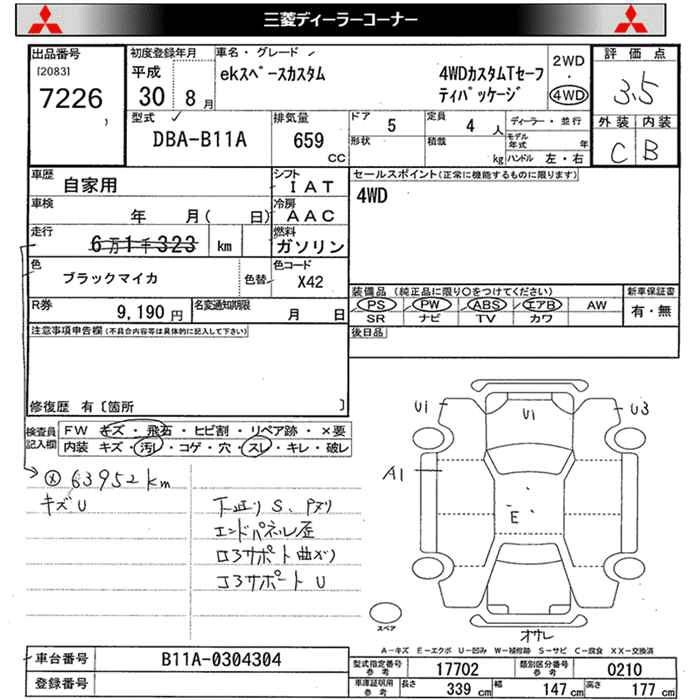 三菱ディーラーコーナー
出品番号
[2083]
7226
初度登録年月
平成
30 8月
車名・グレード
ekスペースカスタム
4WDカスタムTセーフ
ティパッケージ
2WD
・
4WD
評価点
3.5
外装 内装
C B
型式
DBA-B11A
排気量
659
CC
ドア 5
定員 4 人
形状
積載 kg
ディーラー・並行
モデル年式 年
ハンドル 左・右
車歴
自家用
シフト
IAT
セールスポイント(正常に機能するものに限ります)
4WD
車検
年 月( 日)
冷房
AAC
走行
6万1千323 km
燃料
ガソリン
色
ブラックマイカ
色替
色コード
X42
装備品(純正品に限り○をつけてください)
PS PW ABS エアB AW
SR ナビ TV カワ
新車保証書
有・無
R券
9,190 円
名変通知期限
月 日
後日品
注意事項申告欄(不具合内容等は具体的に記入して下さい)
修復歴 有〔箇所 〕
検査員
記入欄
FW キズ・飛石・ヒビ割・リペア跡・×要
内装 キズ・汚レ・コゲ・穴・スレ・キレ・破レ
63952km
キズU
下廻りS、Pヌリ
エンドパネル歪
ロアサポート曲り
コアサポートU
U1
U1
U3
A1
E
スペア
オサレ
A-キズ E-エクボ U-凹み W-補修跡 S-サビ C-腐食 XX-交換済
車台番号
B11A-0304304
登録番号
型式指定番号
参考
17702
類別区分番号
参考
0210
車庫証明用
参考
長さ 339 cm
幅 147 cm
高さ 177 cm